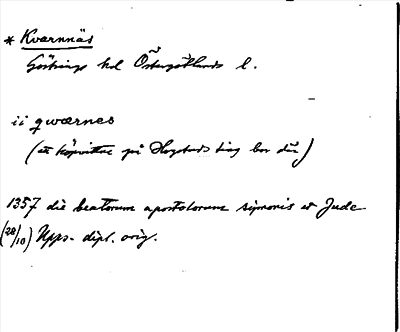 * Kvarnnäs
Göstrings hd Östergötlands l.
ii qwærnes
(ett köpvittne på Hogstads ting bor där)
1357 die beatorum apostolorum simonis et Jude
(28/10) Upps. dipl. orig.